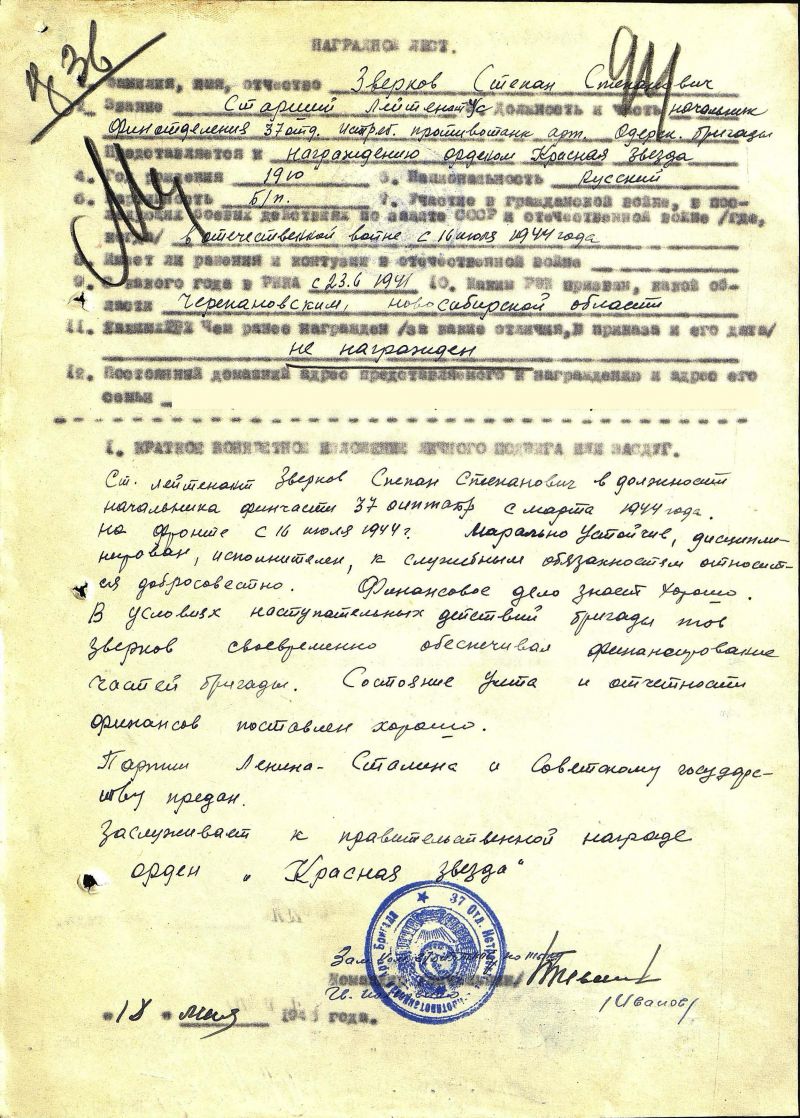 НАГРАДНОЙ ЛИСТ.
936
94
Фамилия, имя, отчество Зверков Степан Степанович
2. Звание Старший Лейтенант А/с Должность и часть начальник
Финотделения 37 отд. истреб. противотанк арт. Бригады
Представляется к награждению орденом Красная Звезда
4. Год рождения 1910 5. Национальность русский
6. Партийность б/п. 7. Участие в гражданской войне, в пос-
ледующих боевых действиях по защите СССР и отечественной войне /где,
когда/ в отечественной войне с 16 июля 1944 года
8. Имеет ли ранения и контузии в отечественной войне
9. С какого года в РККА с 23.6 1941 10. Каким РВК призван, какой об-
ласти Черепановским, новосибирской области
11. Чем ранее награжден /за какие отличия, № приказа и его дата/
не награжден
12. Постоянный домашний адрес представляемого к награждению и адрес его
семьи
1. КРАТКОЕ КОНКРЕТНОЕ ИЗЛОЖЕНИЕ ЛИЧНОГО ПОДВИГА ИЛИ ЗАСЛУГ.
Ст. лейтенант Зверков Степан Степанович в должности
начальника финчасти 37 оиптабр с марта 1944 года.
на фронте с 16 июля 1944 г. Марально устойчив, дисципли-
нирован, исполнителен, к служебным обязанностям относит-
ся добросовестно. Финансовое дело знает хорошо.
В условиях наступательных действий бригады тов
Зверков своевременно обеспечивал финансирование
частей бригады. Состояние учета и отчетности
финансов поставлен хорошо.
Партии Ленина-Сталина и Советскому государс-
тву предан.
Заслуживает к правительственной награде
орден „Красная звезда"
37 Отд. Истреб. Противотанковая Арт. Бригада
Зам
Гв.
/Иванов/
"18" мая 194 года.